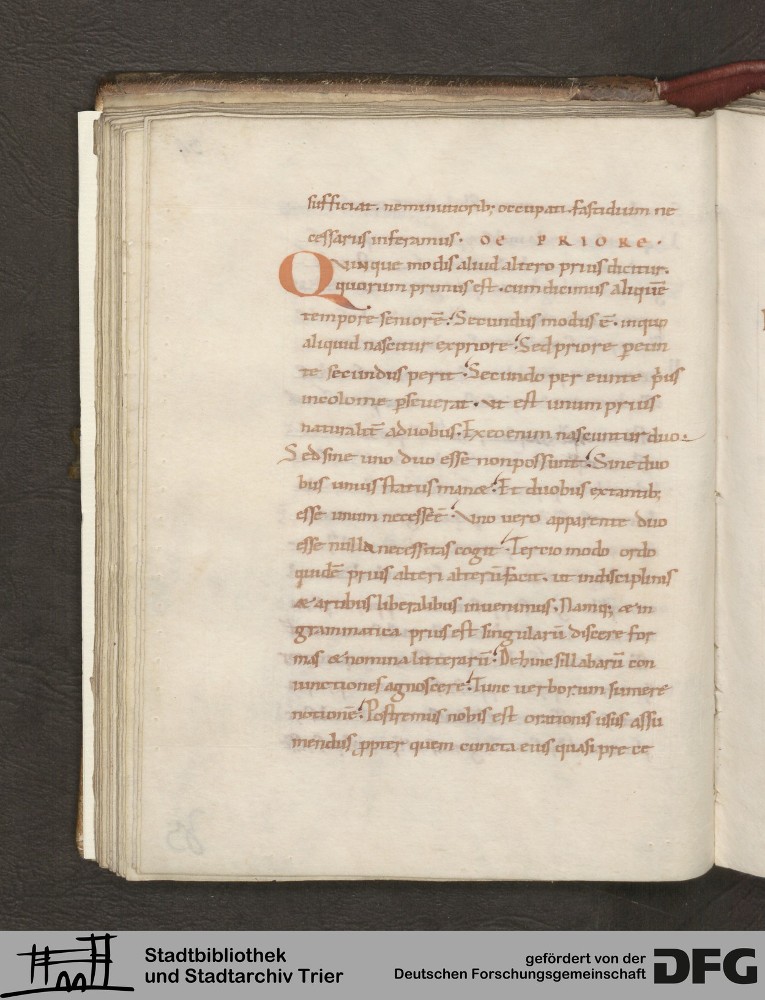 sufficiat. neminutiorib; occupati. fastidium ne
cessarus inferamus. DE PRIORE.
Quinque modis aliud altero prius dicitur.
quorum primus est. cum dicimus aliquẽ
tempore seniorẽ. Secundus modus ẽ. inquo
aliquid nascitur expriore. Sed priore pereun
te secundus perit. Secundo per eunte p̃us
incolome pseuerat. ut est unum prius
naturalit̃ aduobus. Exeo enim nascuntur duo.
Sed sine uno duo esse nonpossunt. Sine duo
bus unius status manet. Et duobus extantib;
esse unum necesse ẽ. Uno uero apparente duo
esse nulla necessitas cogit. Tercio modo ordo
quidẽ prius alteri alterũ facit. ut indisciplinis
& artibus liberalibus inuenimus. Namq; & in
grammatica prius est singularũ discere for
mas & nomina litterarũ. Dehinc sillabarũ con
iunctiones agnoscere. Tunc uerborum sumere
notionẽ. Postremus nobis est orationis usus assu
mendus ppter quem cuncta eius quasi pre ce
85
Stadtbibliothek
und Stadtarchiv Trier
gefördert von der
Deutschen Forschungsgemeinschaft
DFG